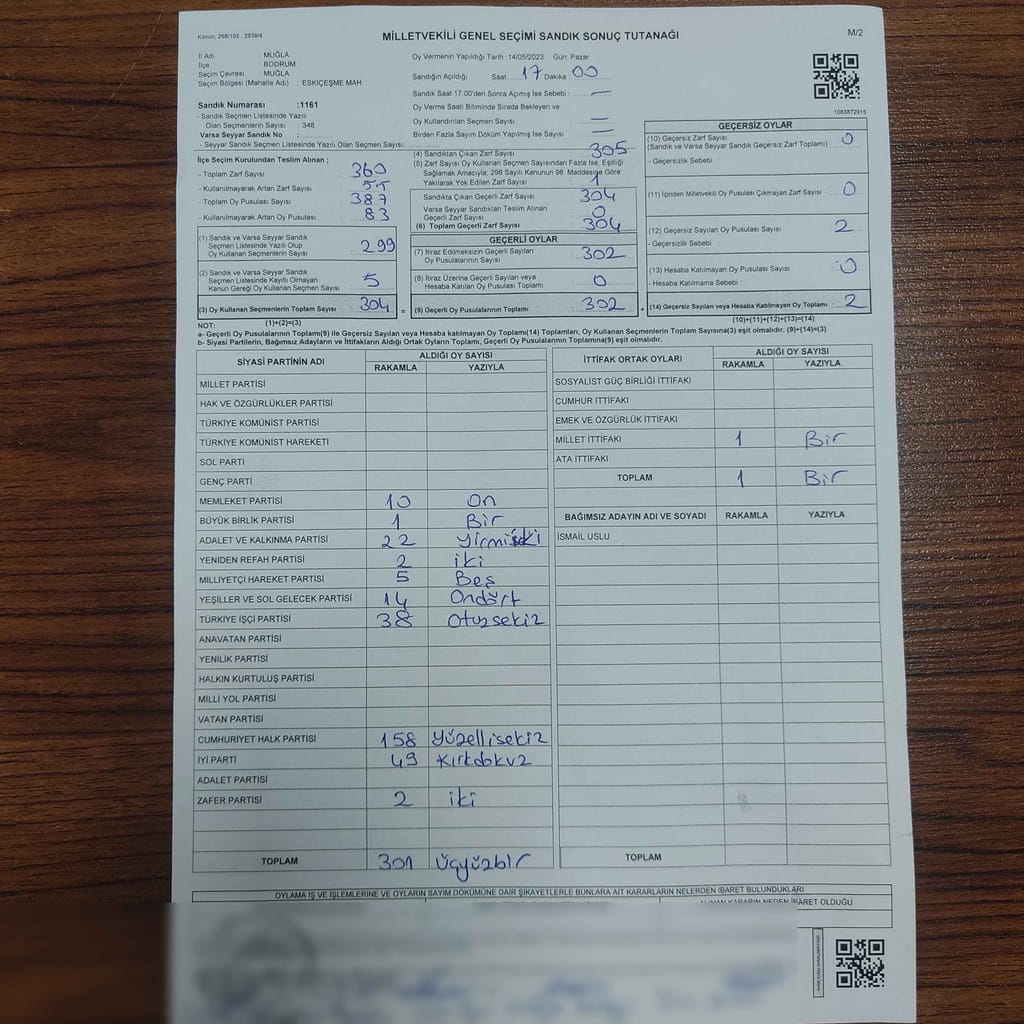 Kanun, 298/105 , 2839/4
MİLLETVEKİLİ GENEL SEÇİMİ SANDIK SONUÇ TUTANAĞI
M/2
İl Adı : MUĞLA
İlçe : BODRUM
Seçim Çevresi : MUĞLA
Seçim Bölgesi (Mahalle Adı) : ESKİÇEŞME MAH
Sandık Numarası :1161
- Sandık Seçmen Listesinde Yazılı
Olan Seçmenlerin Sayısı : 348
Varsa Seyyar Sandık No :
- Seyyar Sandık Seçmen Listesinde Yazılı Olan Seçmen Sayısı:
Oy Vermenin Yapıldığı Tarih :14/05/2023 Gün: Pazar
Sandığın Açıldığı Saat: 17 Dakika : 00
Sandık Saat 17.00'den Sonra Açımış İse Sebebi : —
Oy Verme Saati Bitiminde Sırada Bekleyen ve
Oy Kullandırılan Seçmen Sayısı : —
Birden Fazla Sayım Döküm Yapılmış İse Sayısı : —
1083872915
İlçe Seçim Kurulundan Teslim Alınan ;
- Toplam Zarf Sayısı : 360
- Kullanılmayarak Artan Zarf Sayısı : 55
- Toplam Oy Pusulası Sayısı : 387
- Kullanılmayarak Artan Oy Pusulası : 83
(1) Sandık ve Varsa Seyyar Sandık
Seçmen Listesinde Yazılı Olup
Oy Kullanan Seçmenlerin Sayısı : 299
(2) Sandık ve Varsa Seyyar Sandık
Seçmen Listesinde Kayıtlı Olmayan
Kanun Gereği Oy Kullanan Seçmen Sayısı : 5
(3) Oy Kullanan Seçmenlerin Toplam Sayısı : 304
(1)+(2)=(3)
(4) Sandıktan Çıkan Zarf Sayısı : 305
(5) Zarf Sayısı Oy Kullanan Seçmen Sayısından Fazla İse, Eşitliği
Sağlamak Amacıyla, 298 Sayılı Kanunun 98. Maddesine Göre
Yakılarak Yok Edilen Zarf Sayısı : 1
Sandıkta Çıkan Geçerli Zarf Sayısı : 304
Varsa Seyyar Sandıktan Teslim Alınan
Geçerli Zarf Sayısı : 0
(6) Toplam Geçerli Zarf Sayısı : 304
GEÇERLİ OYLAR
(7) İtiraz Edilmeksizin Geçerli Sayılan
Oy Pusulalarının Sayısı : 302
(8) İtiraz Üzerine Geçerli Sayılan veya
Hesaba Katılan Oy Pusulası Toplamı : 0
= (9) Geçerli Oy Pusulalarının Toplamı : 302
GEÇERSİZ OYLAR
(10) Geçersiz Zarf Sayısı
(Sandık ve Varsa Seyyar Sandık Geçersiz Zarf Toplamı) : 0
- Geçersizlik Sebebi :
(11) İçinden Milletvekili Oy Pusulası Çıkmayan Zarf Sayısı : 0
(12) Geçersiz Sayılan Oy Pusulası Sayısı : 2
- Geçersizlik Sebebi :
(13) Hesaba Katılmayan Oy Pusulası Sayısı : 0
- Hesaba Katılmama Sebebi :
+ (14) Geçersiz Sayılan veya Hesaba Katılmayan Oy Toplamı : 2
(10)+(11)+(12)+(13)=(14)
NOT:
a- Geçerli Oy Pusulalarının Toplamı(9) ile Geçersiz Sayılan veya Hesaba katılmayan Oy Toplamı(14) Toplamları, Oy Kullanan Seçmenlerin Toplam Sayısına(3) eşit olmalıdır. (9)+(14)=(3)
b- Siyasi Partilerin, Bağımsız Adayların ve İttifakların Aldığı Ortak Oyların Toplamı, Geçerli Oy Pusulalarının Toplamına(9) eşit olmalıdır.
SİYASİ PARTİNİN ADI
ALDIĞI OY SAYISI
RAKAMLA YAZIYLA
MİLLET PARTİSİ
HAK VE ÖZGÜRLÜKLER PARTİSİ
TÜRKİYE KOMÜNİST PARTİSİ
TÜRKİYE KOMÜNİST HAREKETİ
SOL PARTİ
GENÇ PARTİ
MEMLEKET PARTİSİ 10 On
BÜYÜK BİRLİK PARTİSİ 1 Bir
ADALET VE KALKINMA PARTİSİ 22 yirmiiki
YENİDEN REFAH PARTİSİ 2 iki
MİLLİYETÇİ HAREKET PARTİSİ 5 Beş
YEŞİLLER VE SOL GELECEK PARTİSİ 14 Ondört
TÜRKİYE İŞÇİ PARTİSİ 38 Otuzsekiz
ANAVATAN PARTİSİ
YENİLİK PARTİSİ
HALKIN KURTULUŞ PARTİSİ
MİLLİ YOL PARTİSİ
VATAN PARTİSİ
CUMHURİYET HALK PARTİSİ 158 Yüzellisekiz
İYİ PARTİ 49 Kırkdokuz
ADALET PARTİSİ
ZAFER PARTİSİ 2 iki
TOPLAM 301 Üçyüzbir
İTTİFAK ORTAK OYLARI
ALDIĞI OY SAYISI
RAKAMLA YAZIYLA
SOSYALİST GÜÇ BİRLİĞİ İTTİFAKI
CUMHUR İTTİFAKI
EMEK VE ÖZGÜRLÜK İTTİFAKI
MİLLET İTTİFAKI 1 Bir
ATA İTTİFAKI
TOPLAM 1 Bir
BAĞIMSIZ ADAYIN ADI VE SOYADI RAKAMLA YAZIYLA
İSMAİL USLU
TOPLAM
OYLAMA İŞ VE İŞLEMLERİNE VE OYLARIN SAYIM DÖKÜMÜNE DAİR ŞİKAYETLERLE BUNLARA AİT KARARLARIN NELERDEN İBARET BULUNDUKLARI
ALINAN KARARIN NEDEN İBARET OLDUĞU